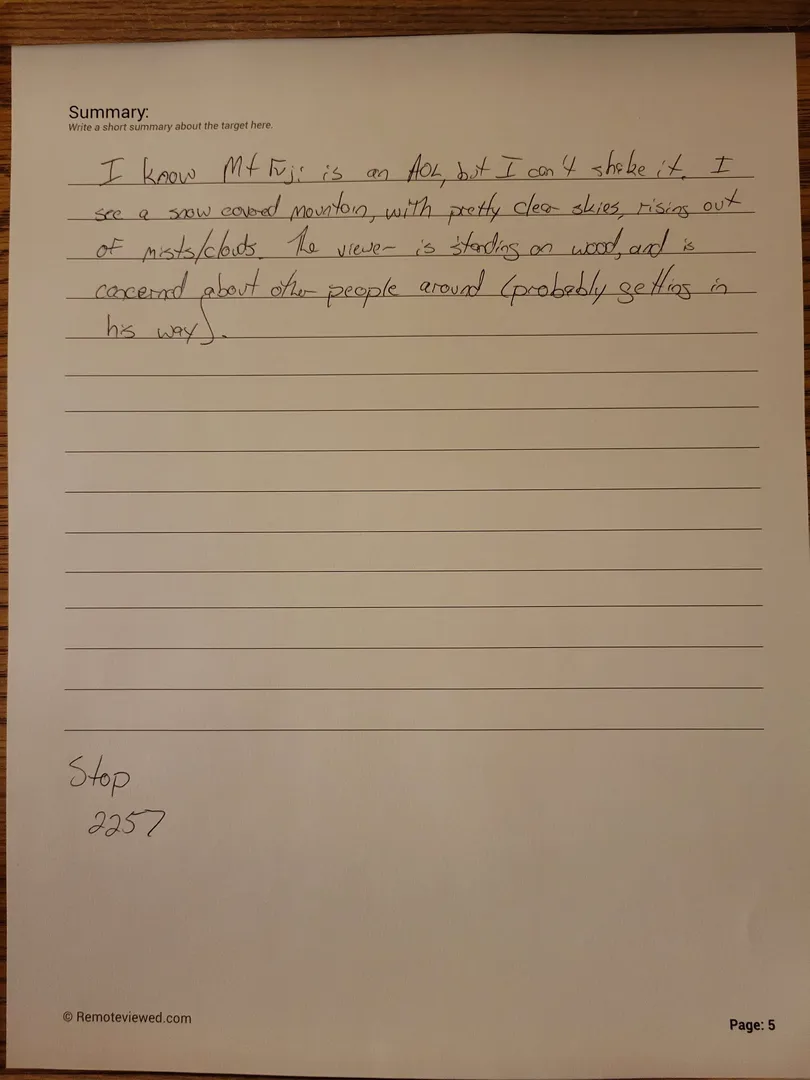 Summary:
Write a short summary about the target here.
I know Mt Fuji is an AOL, but I can't shake it. I
see a snow covered mountain, with pretty clear skies, rising out
of mists/clouds. The viewer is standing on wood, and is
concerned about other people around (probably getting in
his way).
Stop
2257
© Remoteviewed.com
Page: 5